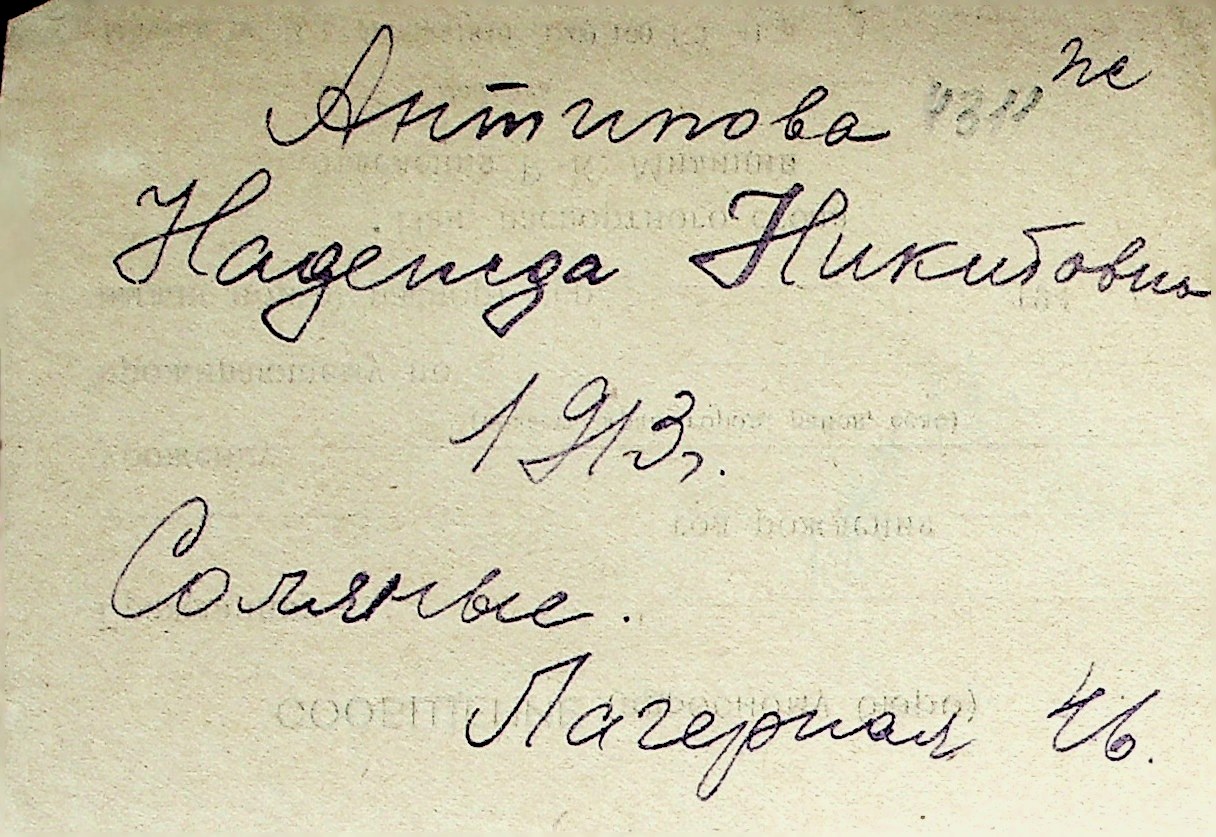 Антипова
Надежда Никитовна
1913г.
Соляные.
Лагерная 46.